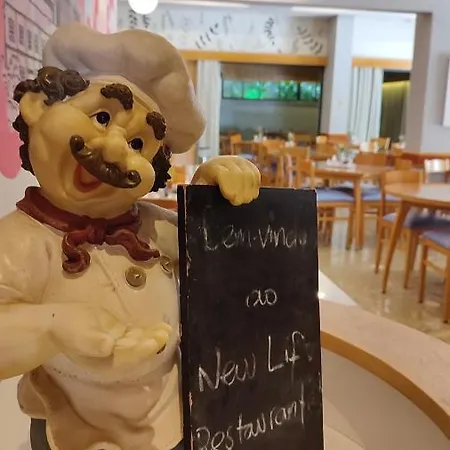 Bem-vindo
ao
New Life
Restaurante